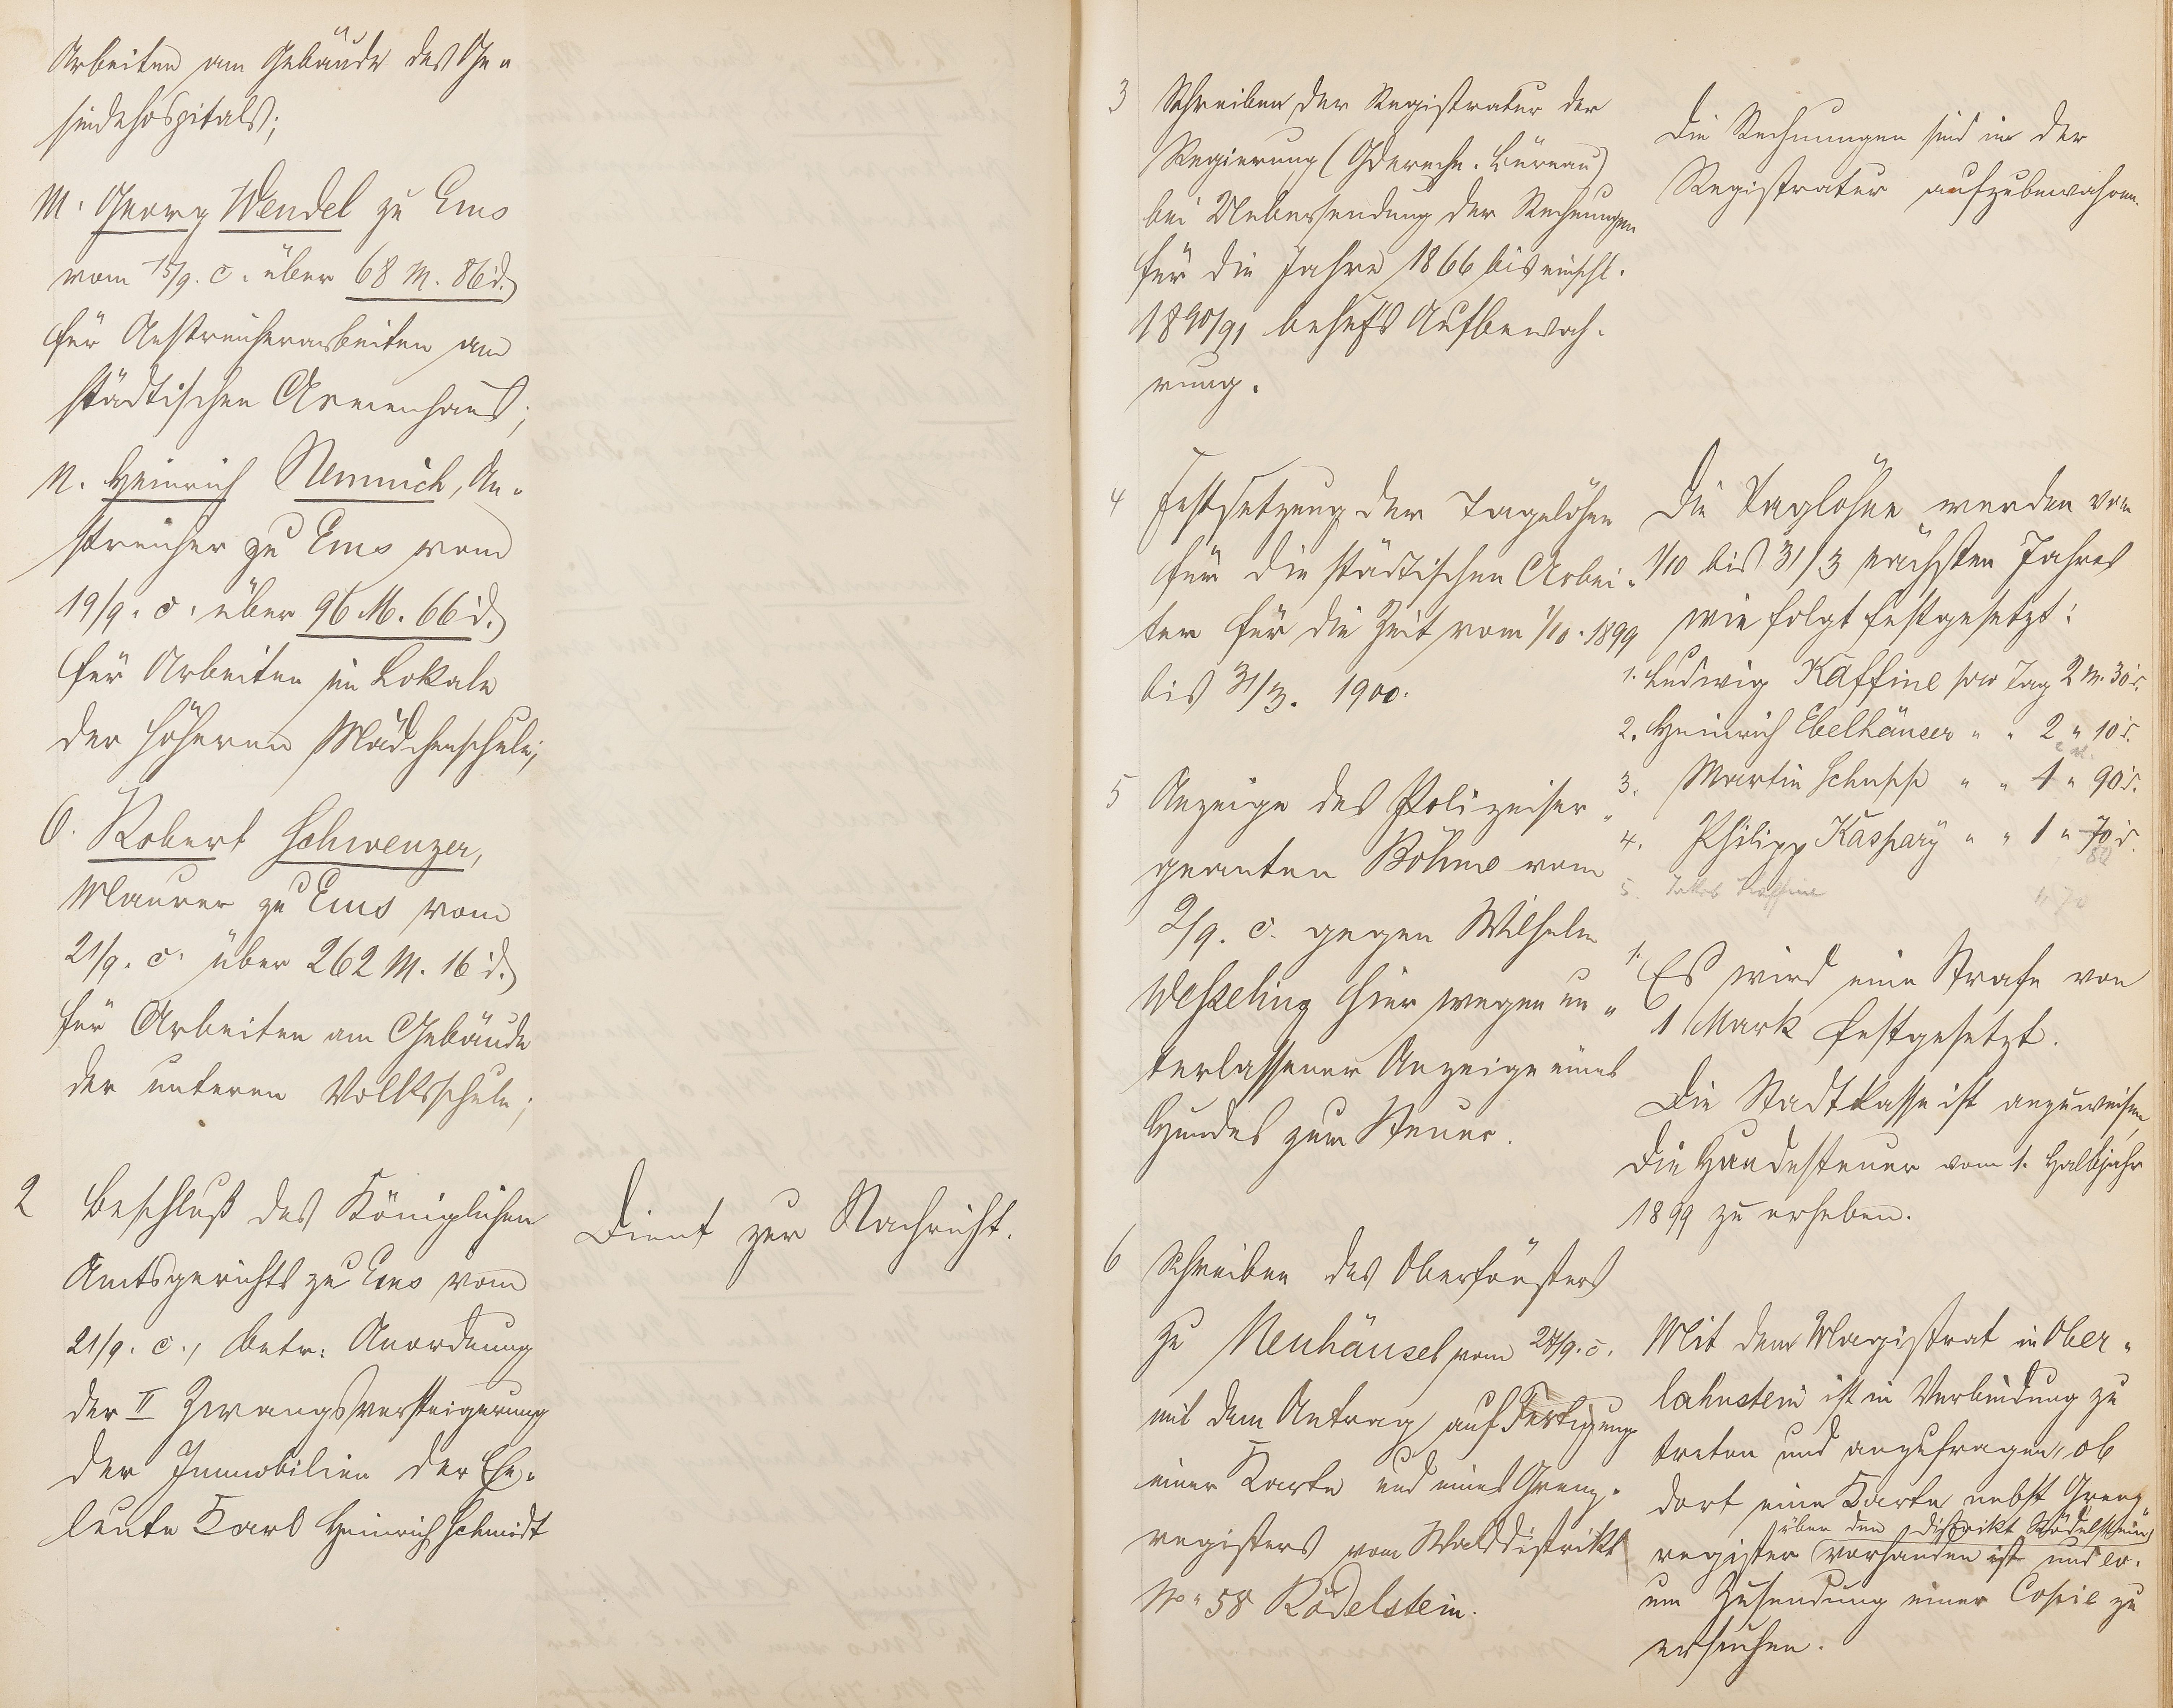 Arbeiten am Gebäude des Ge-
sindehospitals;
M. Georg Wendel zu Ems
vom 15/9. c. über 68 M. 86 d.
für Anstreicherarbeiten am
städtischen Armenhaus;
N. Heinrich Nemnich, An-
streicher zu Ems vom
19/9. c. über 96 M. 66 d.
für Arbeiten im Lokale
der höheren Mädchenschule;
O. Robert Schwenzer,
Maurer zu Ems vom
21/9. c. über 262 M. 16 d.
für Arbeiten am Gebäude
der unteren Volksschule;
2 Beschluß des Königlichen
Amtsgerichts zu Ems vom
21/9. c., betr. Anordnung
der II Zwangsversteigerung
der Immobilien der Ehe-
leute Karl Heinrich Schmidt
Dient zur Nachricht.
3 Schreiben der Registratur der
Regierung ( Büreau)
bei Uebersendung der Rechnungen
für die Jahre 1866 bis einschl.
1890/91 behufs Aufbewah-
rung.
Die Rechnungen sind in der
Registratur aufzubewahren.
4 Festsetzung der Tagelöhne
für die städtischen Arbei-
ter für die Zeit vom 1/10. 1899
bis 31/3. 1900.
Die Taglöhne werden vom
1/10 bis 31/3 nächsten Jahres
wie folgt festgesetzt:
1. Ludwig Kaffine pro Tag 2 M. 30 d.
2. Heinrich Ebelhäuser " " 2 " 10 d.
3. Martin Schupp " " 1 " 90 d.
4. Philipp Kaspary " " 1 " 70 d.
80
5. Jakob Kaffine 1, 70
5 Anzeige des Polizeiser-
geanten Böhme vom
2/9. c. gegen Wilhelm
Weßeling hier wegen un-
terlassener Anzeige eines
Hundes zur Steuer.
1. Es wird eine Strafe von
1 Mark festgesetzt.
Die Stadtkasse ist anzuweisen,
die Hundesteuer vom 1. Halbjahr
1899 zu erheben.
6 Schreiben des Oberförsters
zu Neuhäusel vom 28/9. c.
mit dem Antrag auf Fertigung
einer Karte und eines Grenz-
registers vom Walddistrikt
No. 58 Rödelstein.
Mit dem Magistrat in Ober-
lahnstein ist in Verbindung zu
treten und anzufragen, ob
dort eine Karte nebst Grenz-
über den Distrikt Rödelstein
register vorhanden ist und ev.
um Zusendung einer Copie zu
ersuchen.